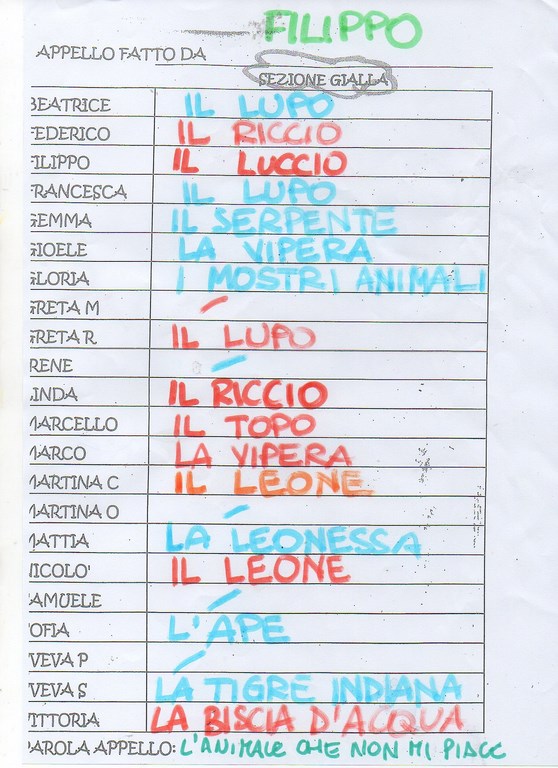 FILIPPO
APPELLO FATTO DA
SEZIONE GIALLA
BEATRICE IL LUPO
FEDERICO IL RICCIO
FILIPPO IL LUCCIO
FRANCESCA IL LUPO
GEMMA IL SERPENTE
GIOELE LA VIPERA
GLORIA I MOSTRI ANIMALI
GRETA M /
GRETA R IL LUPO
RENE /
LINDA IL RICCIO
MARCELLO IL TOPO
MARCO LA VIPERA
MARTINA C IL LEONE
MARTINA O /
MATTIA LA LEONESSA
NICOLO' IL LEONE
SAMUELE /
SOFIA L'APE
VEVA P /
VEVA S LA TIGRE INDIANA
VITTORIA LA BISCIA D'ACQUA
PAROLA APPELLO: L'ANIMALE CHE NON MI PIACE